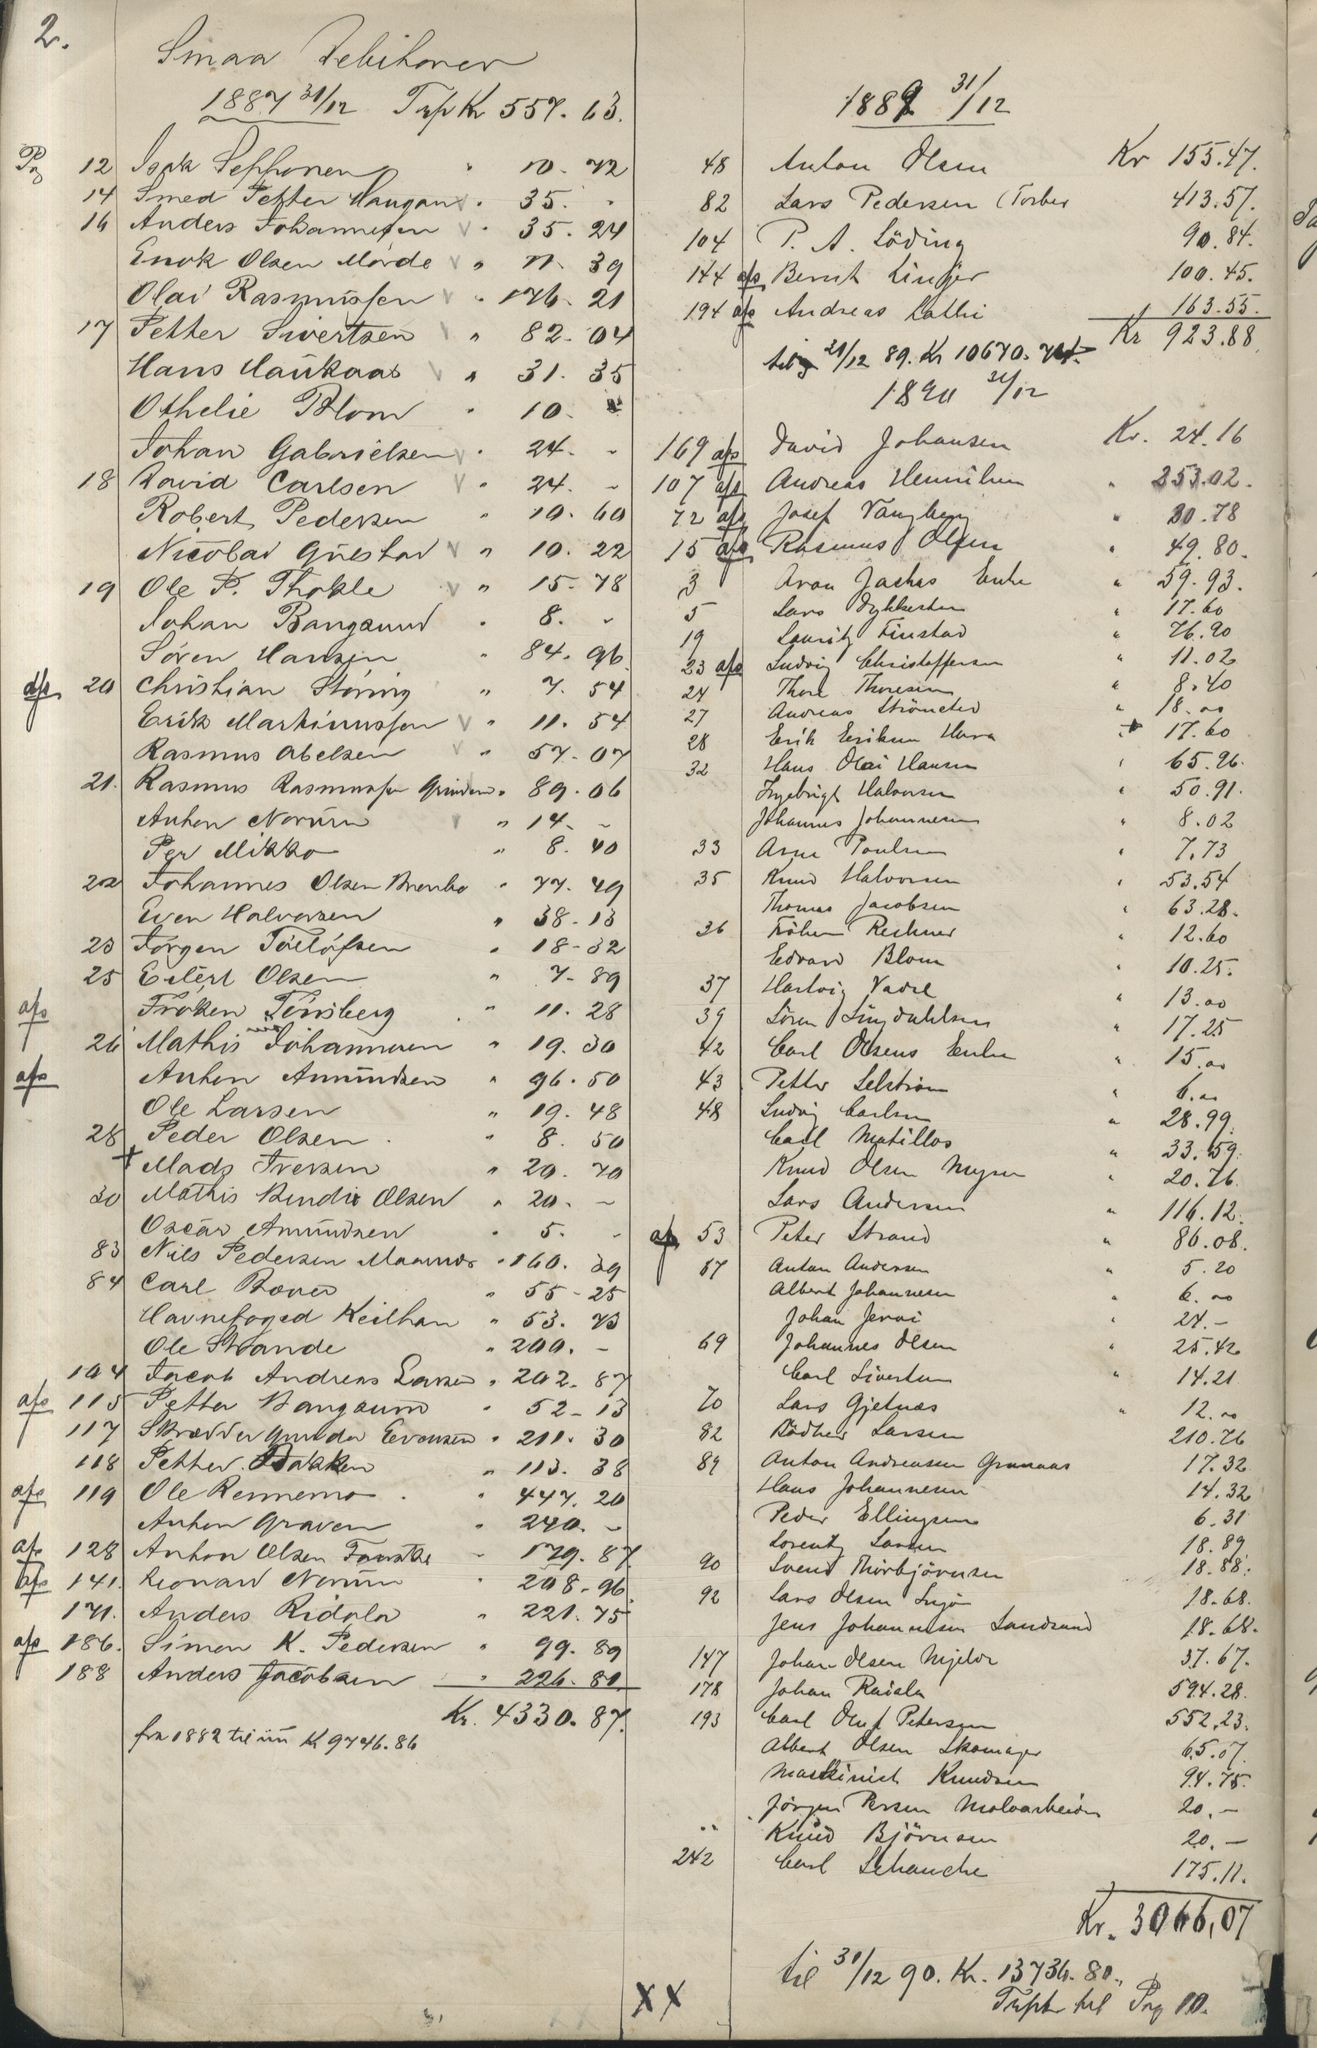 2.
Smaa Debitorer
1887 31/12 Trsp Kr 557. 63.
Pag 12 Isak Sephonen " 10. 72
14 Smed Petter Haugan " 35. "
16 Anders Johannesen " 35. 24
Enok Olsen Mörde " 11. 39
Olai Rasmussen " 176. 21
17 Petter Sivertsen " 82. 04
Hans Haukaas " 31. 35
Othelie Blom " 10. "
Johan Gabrielsen " 24. -
18 David Carlsen " 24. -
Robert Pedersen " 10. 60
Nicolai Gustav " 10. 22
19 Ole P. Thokle " 15. 78
Johan Bangsund " 8. -
Sören Hansen " 84. 96
afs 20 Christian Störing " 7. 54
Erik Martinussen " 11. 54
Rasmus Abelsen " 57. 07
21. Rasmus Rasmussen " 89. 06
Anton Norum " 14. -
Per Mikko " 8. 40
22 Johannes Olsen " 77. 49
Even Halvorsen " 38. 13
23 Jörgen " 18. 32
25 Eilert Olsen " 7. 89
afs Fröken Tönsberg " 11. 28
26 Mathis Johannesen " 19. 30
afs Anton Amundsen " 96. 50
Ole Larsen " 19. 48
28 Peder Olsen " 8. 50
+ Mads Iversen " 20. 70
30 Mathis Olsen " 20. -
Oscar Amundsen " 5. -
83 Nils Pedersen " 160. 39
84 Carl " 55. 25
Havnefoged Keilhau " 53. 73
Ole Strande " 200. -
104 Jacob Andreas Larsen " 202. 87
afs 115 Petter Bangsund " 52. 13
117 Skrædder Evensen " 211. 30
118 Petter Bakken " 113. 38
afs 119 Ole Rennemo " 447. 20
Anton Graven " 240. -
afs 128 Anton Olsen " 179. 87
afs 141. Leonard Norum " 208. 96
171. Anders Ridola " 221. 75
afs 186. Simon K. Pedersen " 99. 89
188 Anders Jacobsen " 226. 80
Kr. 4330. 87.
fra 1882 til nu Kr 9746. 86
1889 31/12
48 Anton Olsen Kr 155.47.
82 Lars Pedersen 413.57.
104 P. A. Löding 90.84.
144 afs Bernt 100.45.
194 afs Andreas Lathi 163.55.
Kr 923.88
31/12 89. Kr 10670.74
1890 31/12
169 afs David Johansen Kr. 24.16
107 afs Andreas Henriksen " 253.02.
72 afs Josef Vangberg " 30.78
15 afs Rasmus Olsen " 49.80.
3 Aron Enke " 59.93.
5 Lars " 17.60
19 Lauritz Finstad " 76.90
23 afs Ludvig Christoffersen " 11.02
24 Thore Thoresen " 8.40
27 Andreas " 18.00
28 Erik Eriksen " 17.60
32 Hans Olai Hansen " 65.96.
Ingebrigt Halvorsen " 50.91.
Johannes Johannesen " 8.02
33 Arne Paulsen " 7.73
35 Knud Halvorsen " 53.54
Thomas Jacobsen " 63.28.
36 Fröken " 12.60
Edvard Blom " 10.25.
37 Hartvig " 13.00
39 Sören " 17.25
42 Carl Olsens Enke " 15.00
43 Petter " 6.00
48 Ludvig Carlsen " 28.99.
Carl Matillas " 33.59.
Knud Olsen " 20.76.
Lars Andersen " 116.12.
afs 53 Peter Strand " 86.08.
57 Anton Andersen " 5.20
Albert Johannesen " 6.00
Johan " 24.-
69 Johannes Olsen " 25.42
Carl Sivertsen " 14.21
70 Lars Gjetnæs " 12.00
82 Bödker Larsen 210.76
89 Anton Andreasen 17.32
Hans Johannesen 14.32
Peder Ellingsen 6.31
Lorentz Larsen 18.89
90 Svend Thorbjörnsen 18.88.
92 Lars Olsen 18.68.
Jens Johannesen Landsund 18.68.
147 Johan Olsen 37.67.
178 Johan Raisla 594.28
193 Carl Oluf Petersen 552.23.
Albert Olsen Skomager 65.07.
Maskinist Knudsen 94.75.
Jörgen Persen 20.-
" Knud Björnsen 20.-
242 Carl Schanche 175.11.
Kr. 3066,07
til 31/12 90. Kr. 13736.80.
Trsptr til Pag 10.
XX